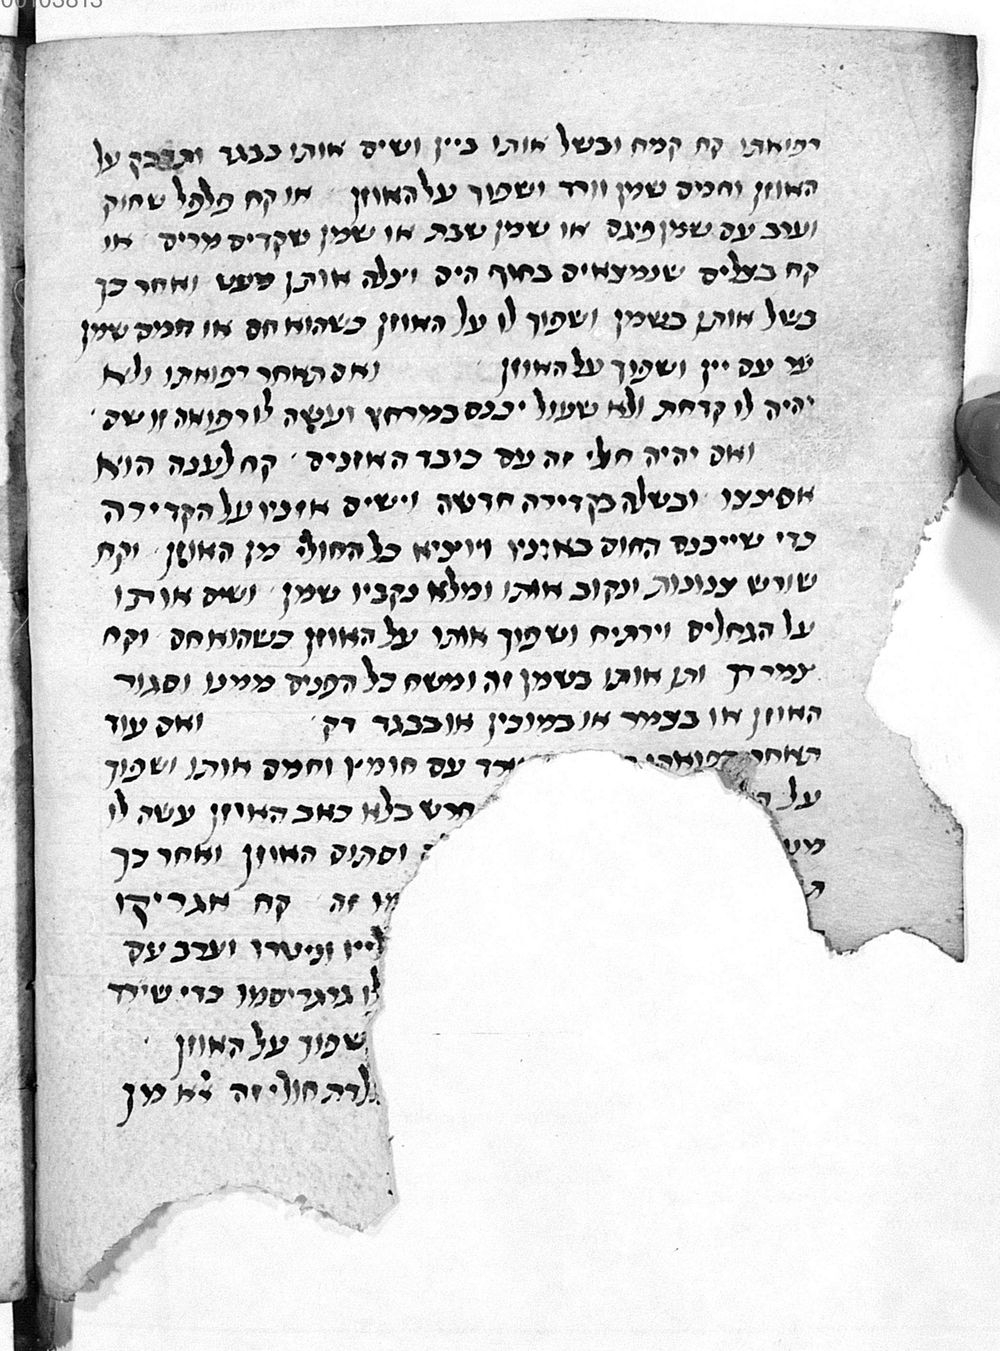 00103813
רפואתו קח קמח ובשל אותו ביין ושים אותו בבגד ותדבק על
האוזן וחמם שמן וורד ושפוך על האוזן או קח פלפל שחוק
וערב עם שמן פיגם או שמן שבת או שמן שקדים מרים או
קח בצלים שנמצאים בחוף הים ויצלה אותן מעט ואחר כך
בשל אותן בשמן ושפוך לו על האוזן כשהוא חם או חמם שמן
עם יין ושפוך על האוזן ואם תאחר רפואתו ולא
יהיה לו קדחת ולא שעול יכנס במרחץ ועשה לו רפואה זו שם
ואם יהיה חולי זה עם כובד האזנים קח לענה הוא
אסינצו ובשלה בקדירה חדשה וישים אזניו על הקדירה
כדי שייכנס החום באזניו ויוציא כל החולי מן האוזן וקח
שורש צנונות ונקוב אותו ומלא נקביו שמן ושים אותו
על הגחלים וירתיח ושפוך אותו על האוזן כשהוא חם וקח
צמר רך ותן אותו בשמן זה ומשח כל הפנים ממנו וסגור
האוזן או בצמר או במוכין או בבגד דק ואם עוד
תאחר רפואתו עם חומץ וחמם אותו ושפוך
על חרש בלא כאב האוזן עשה לו
וסתום האוזן ואחר כך
זה קח אגריקו
וניטרו וערב עם
לו גרגריסמו כדי שירד
שפוך על האוזן
חולי זה צא מן